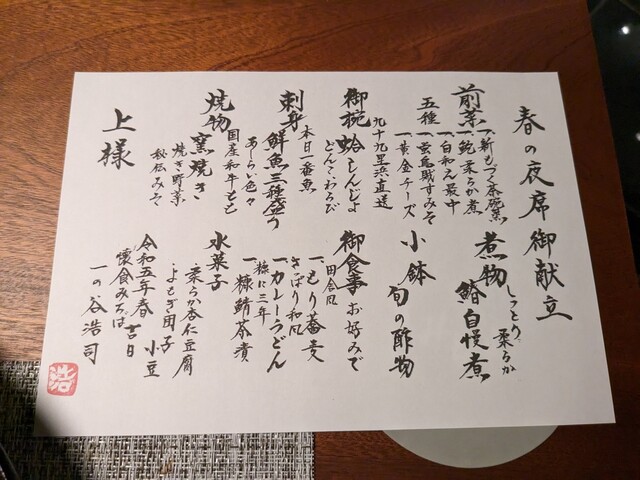 春の夜席御献立
前菜
五種
一、新もづく茶碗蒸
一、鮑柔らか煮
一、白和え最中
一、蛍烏賊すみそ
一、黄金チーズ
御椀
九十九里浜直送
蛤しんじょ
どんこわらび
刺身
本日一番魚
鮮魚三種盛り
あしらい色々
焼物
窯焼き
国産和牛もも
焼き野菜
秘伝みそ
上様
煮物
しっとり柔らか
鰆自慢煮
小鉢
旬の酢物
御食事
お好みで
一、もり蕎麦
田舎風
さっぱり和風
一、カレーうどん
糠に三年
一、糠鯖茶漬
水菓子
柔らか杏仁豆腐
よもぎ団子
小豆
令和五年春 吉日
懐食みちば
一の谷浩司
浩